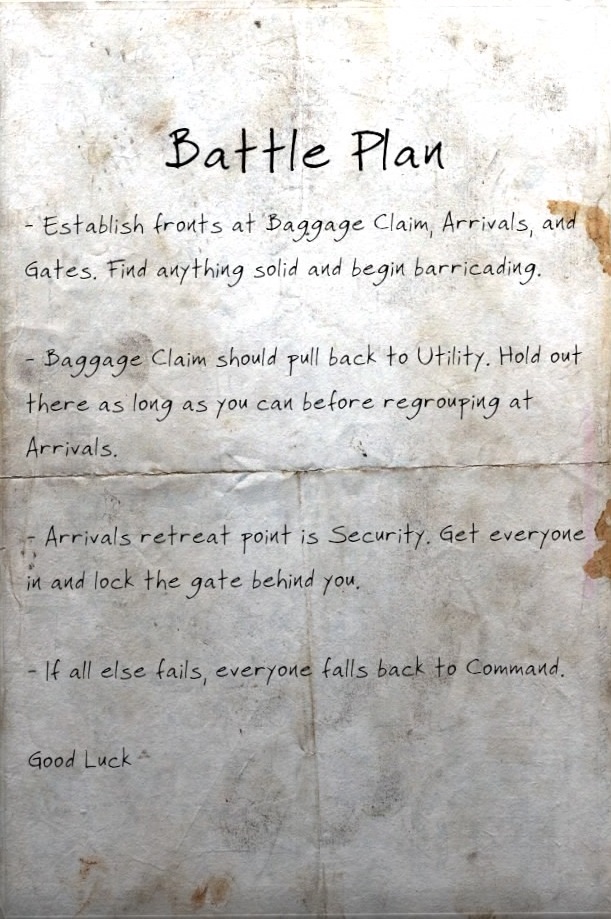 Battle Plan
- Establish fronts at Baggage Claim, Arrivals, and
Gates. Find anything solid and begin barricading.
- Baggage Claim should pull back to Utility. Hold out
there as long as you can before regrouping at
Arrivals.
- Arrivals retreat point is Security. Get everyone
in and lock the gate behind you.
- If all else fails, everyone falls back to Command.
Good Luck